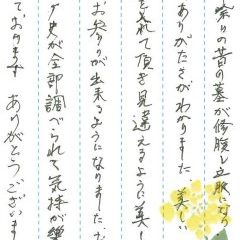 祭りの昔の墓が修復し立派になり
ありがたさがわかりました 美しい
を入れて頂き見違えるように美し
お参りが出来るようになりました。
歴史が全部調べられて気持が楽
ております ありがとうございます